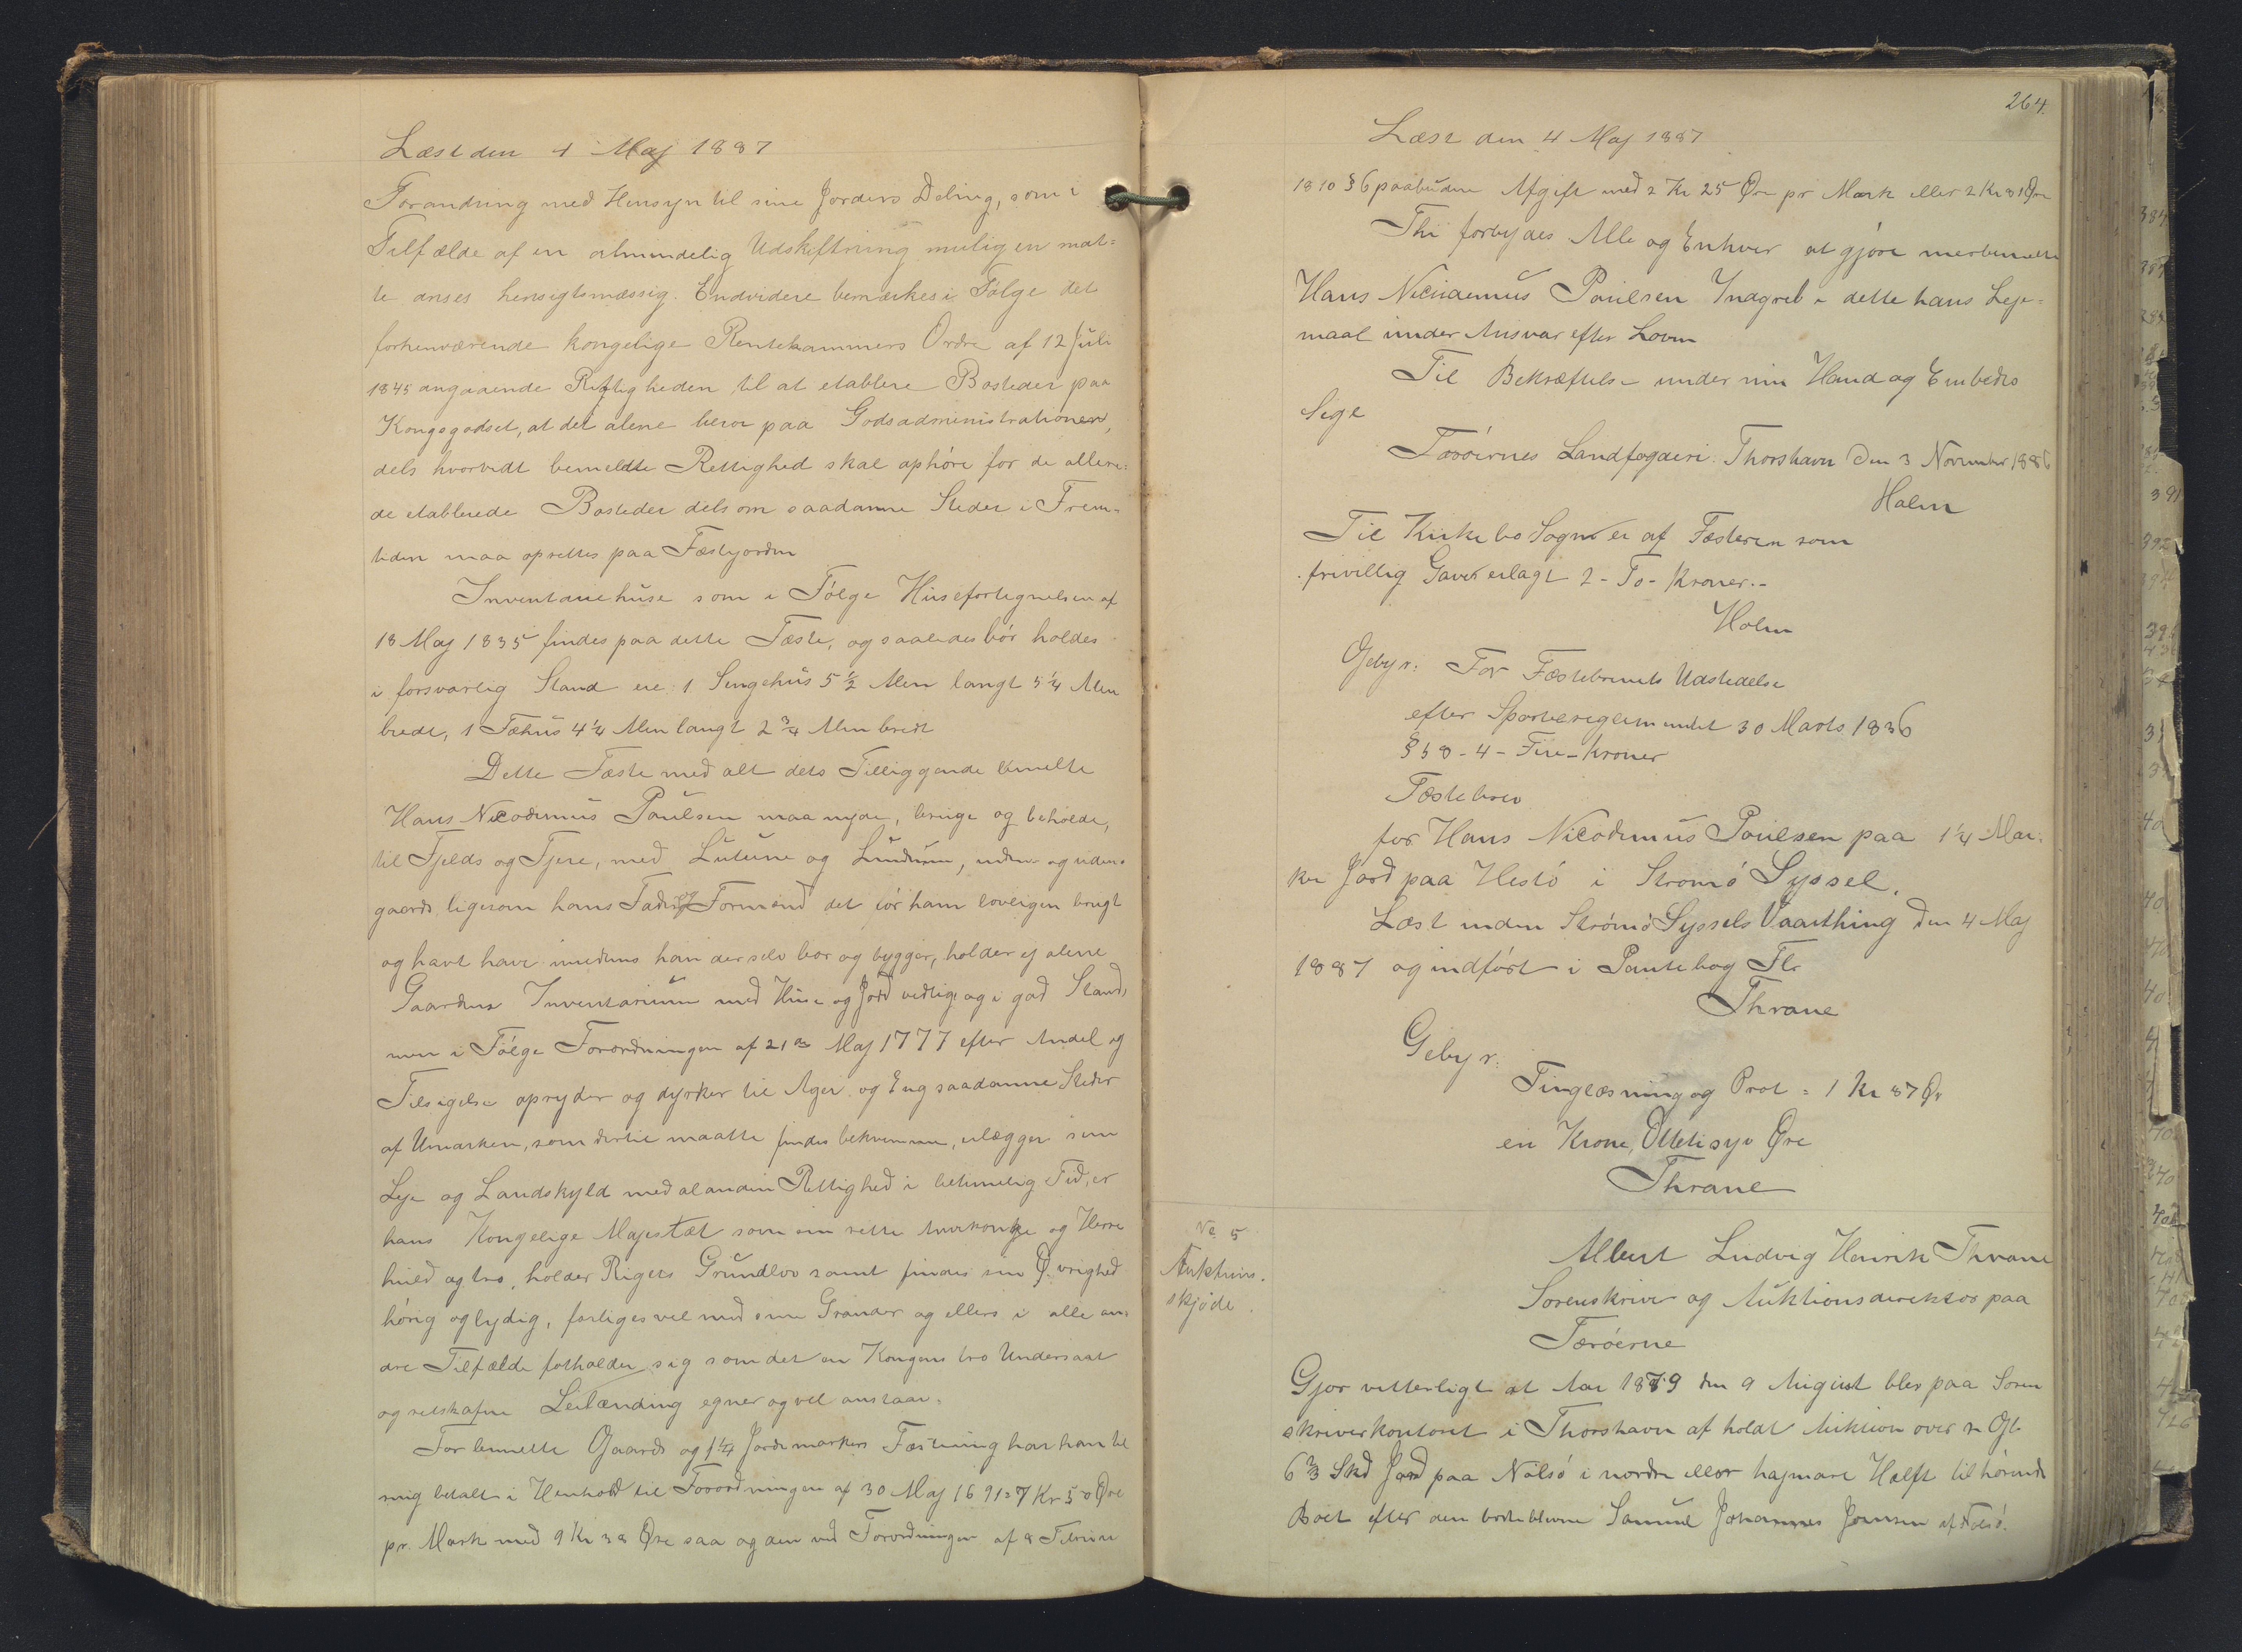 Læst den 4 Maj 1887
Forandring med Hensyn til sine Jorders Deling, som i
Tilfælde af en almindelig Udskiftning mulig en mat=
te anses hensigtsmæssig. Endvidere bemærkes i Følge det
forhenværende kongelige Rentekammers Ordre af 12 Juli
1845 angaaende Rettigheden til at etablere Bosteder paa
Kongsgodset, at det alene beror paa Godsadministrationen,
dels hvorvidt bemeldte Rettighed skal ophøre for de allere=
de etablerede Bosteder dels om saadanne Steder i Frem=
tiden maa oprettes paa Fæstejorden
Inventariehuse som i Følge Husefortegnelsen af
18 Maj 1835 findes paa dette Fæste, og saaledes bør holdes
i forsvarlig Stand ere: 1 Sengehus 5 1/2 Alen langt 5 1/4 Alen
bredt, 1 Fæhus 4 1/4 Alen langt 2 3/4 Alen bredt
Dette Fæste med alt dets Tilliggende bemelte
Hans Nicodemus Poulsen maa nyde, bruge og beholde,
til Fjelds og Fjere, med Lutum og Lundum, inden og uden=
gaards ligesom hans Fader og Formænd det før ham lovligen brugt
og havt have imedens han der selv bor og bygger, holder ej alene
Gaardens Inventarium med Huse og Jord vedlige og i god Stand,
men i Følge Forordningen af 21de Maj 1777 efter Andel og
Tilsigelse oprydder og dyrker til Ager og Eng saadanne Steder
af Umarken, som dertil maatte findes bekvemme, erlægger sin
Leje og Landskyld med al anden Rettighed i betimelig Tid, er
hans Kongelige Majestæt som sin rette Arvekonge og Herre
huld og tro, holder Rigets Grundlov samt findes sin Øvrighed
hørig og lydig, forliges vel med sine Grander og ellers i alle an=
dre Tilfælde forholder sig som det en Kongens tro Undersaat
og retskafne Leilænding egner og vel anstaar.
For bemelte Gaards og 1 1/4 Jordemarkers Fæstning har han til
mig betalt i Henhold til Forordningen af 30 Maj 1691 = 7 Kr 50 Øre
pr. Mark med 9 Kr 38 Øre saa og den ved Forordningen af 8 Februar
264.
Læst den 4 Maj 1887
1810 § 6 paabudne Afgift med 2 Kr 25 Øre pr Mark eller 2 Kr 81 Øre
Thi forbydes Alle og Enhver at gjøre merbemelte
Hans Nicodemus Poulsen Indgreb i dette hans Leje=
maal under Ansvar efter Loven
Til Bekræftelse under min Haand og Embeds
Segl
Færøernes Landfogderi. Thorshavn den 3 November 1886
Holm
Til Kirkebø Sogn er af Fæsteren som
frivillig Gave erlagt 2 - To - Kroner.-
Holm
Gebyr: For Fæstebrevets Udstedelse
efter Sportelreglementet 30 Marts 1836
§ 58 - 4 - Fire - Kroner
Fæstebrev
for Hans Nicodemus Poulsen paa 1 1/4 Mar=
ker Jord paa Hestø i Strømø Syssel.
Læst inden Strømø Syssels Vaarthing den 4 Maj
1887 og indført i Pantebog Fl.
Thrane
Gebyr:
Tinglæsning og Prot = 1 Kr 87 Ør
en Krone, Ottetisyv Øre
Thrane
No 5
Auktions.
skjøde.
Albert Ludvig Henrik Thrane
Sorenskriver og Auktionsdirektør paa
Færøerne
Gjør vitterligt at Aar 1879 den 9 August blev paa Soren
skriverkontoret i Thorshavn af holdt Auktion over 2 Gl.
6 2/3 Skd Jord paa Nølsø i nordre eller hajmare Halft tilhørende
Boet efter den bortblevne Samuel Johannes Joensen af Nolsø.